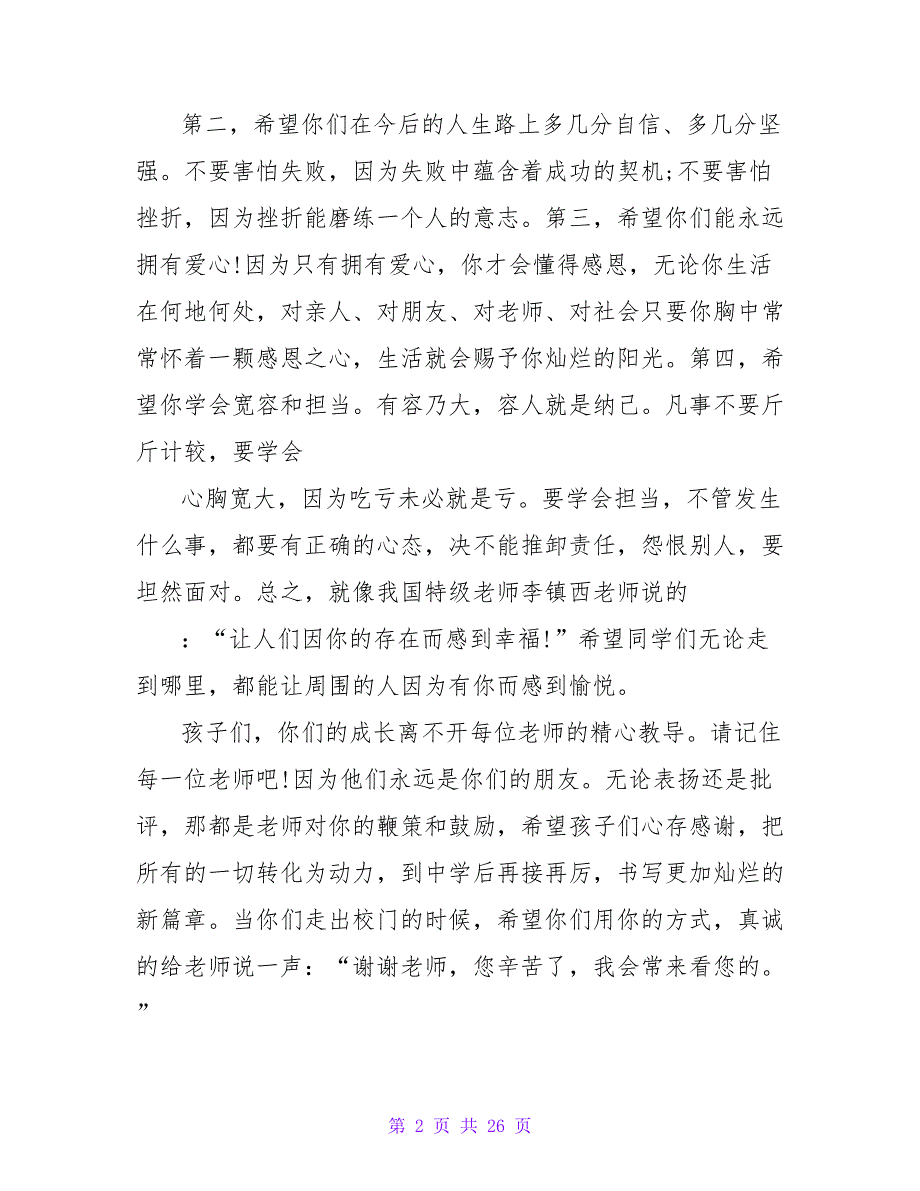 第二，希望你们在今后的人生路上多几分自信、多几分坚
强。不要害怕失败，因为失败中蕴含着成功的契机;不要害怕
挫折，因为挫折能磨练一个人的意志。第三，希望你们能永远
拥有爱心!因为只有拥有爱心，你才会懂得感恩，无论你生活
在何地何处，对亲人、对朋友、对老师、对社会只要你胸中常
常怀着一颗感恩之心，生活就会赐予你灿烂的阳光。第四，希
望你学会宽容和担当。有容乃大，容人就是纳己。凡事不要斤
斤计较，要学会
心胸宽大，因为吃亏未必就是亏。要学会担当，不管发生
什么事，都要有正确的心态，决不能推卸责任，怨恨别人，要
坦然面对。总之，就像我国特级老师李镇西老师说的
：“让人们因你的存在而感到幸福!”希望同学们无论走
到哪里，都能让周围的人因为有你而感到愉悦。
孩子们，你们的成长离不开每位老师的精心教导。请记住
每一位老师吧!因为他们永远是你们的朋友。无论表扬还是批
评，那都是老师对你的鞭策和鼓励，希望孩子们心存感谢，把
所有的一切转化为动力，到中学后再接再厉，书写更加灿烂的
新篇章。当你们走出校门的时候，希望你们用你的方式，真诚
的给老师说一声：“谢谢老师，您辛苦了，我会常来看您的。
”
第 2 页 共 26 页